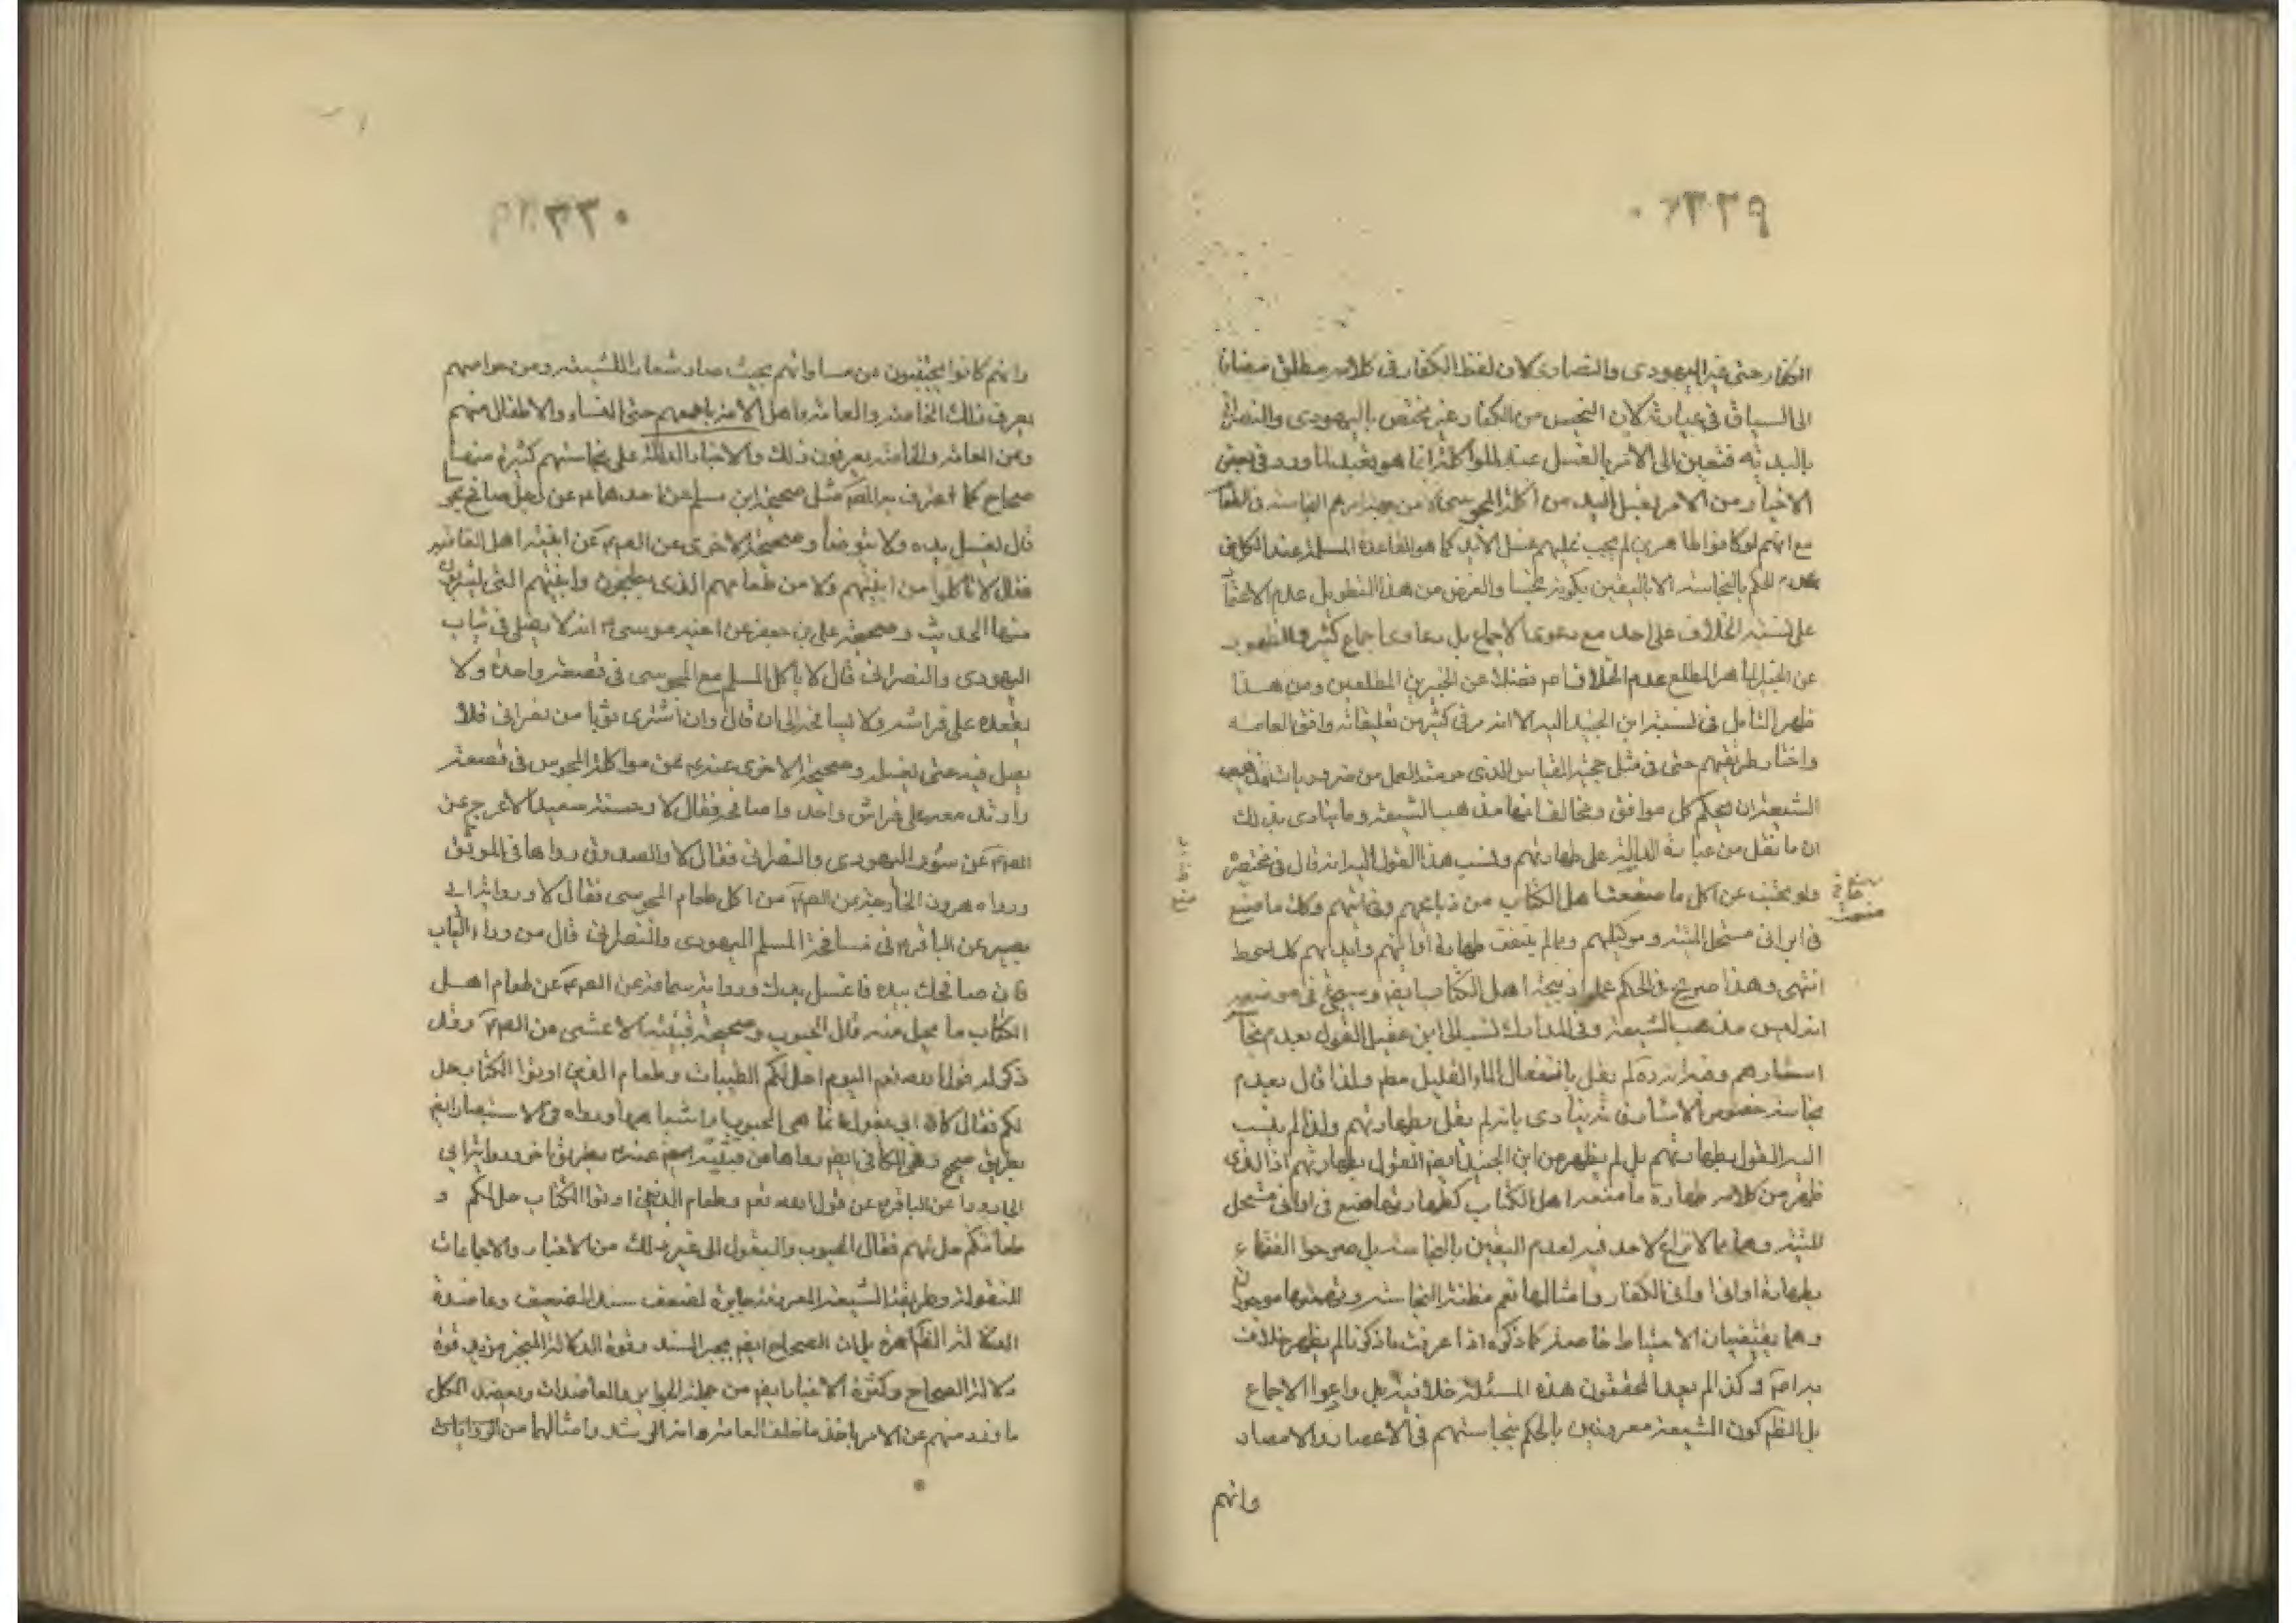 ٣٣٦٩
الكفار حتى غير اليهودى والنصارى لان لفظ الكفار فى كلامه مطلق مضافا
الى السياق فى عبارته لان النجس من الكفار غير مختص باليهودى والنصرانى
بالبديهة فتعين ان الامر بالغسل عند المواكلة انما هو تعبد لما ورد فى بعض
الاخبار من الامر بغسل اليد من اكله المجوسى لا من جهة
مع انهم لو كانوا طاهرين لم يجب عليهم غسل الايد كما هو القاعدة المسلمة عند الكل فى
عدم الحكم بالنجاسة الا باليقين بكونه نجسا والغرض من هذا التطويل عدم الاعتماد
على نسبة الخلاف على احد مع دعوى الاجماع بل دعاوى اجماع كثيرة والظهور
عن الخبير الماهر المطلع عدم الخلاف اصلا فضلا عن الخبيرين المطلعين ومن هذا
ظهر التامل فى نسبة ابن الجنيد اليه الا انه مر فى كثير من تعليقاته وافق العامة
واختار طريقتهم حتى فى مثل حجية القياس الذى حرمة العمل من ضروريات مذهب
الشيعة ان ليحكم كل موافق ومخالف انها مذهب الشيعة وما ينادى بذلك
ان ما نقل من عبارته الدالة على طهارتهم ونسب هذا القول اليه انه قال فى مختصره
ولو تجنب عن اكل ما صنعه اهل الكتاب من ذبايحهم وفى انيتهم وكل ما صنع
فى اوانى مستحل الميتة ومواكيلهم وما لم يتيقن طهارة اوانيهم وايديهم كان احوط
انتهى وهذا صريح فى الحكم على ذبيحة اهل الكتاب ايضا وسيجئ فى موضعه
انه ليس مذهب الشيعة وفى المدارك نسب الى ابن عقيل القول بعدم نجاسة
اسئارهم وفيه انه لم يقل بانفعال الماء القليل مطم ولذا قال بعدم
نجاسة خصوص الاسئار ينادى بانه لم يقل بطهارتهم ولذا لم ينسب
اليه القول بطهارتهم بل لم يظهر من ابن الجنيد ايضا القول بطهارتهم اذ الذى
ظهر من كلامه طهارة ما صنعه اهل الكتاب كطهارة ما صنع فى اوانى مستحل
الميتة وهما مما لا نزاع لاحد فيه لعدم اليقين بالنجاسة بل صرحوا الفقهاء
بطهارة اوانى الكفار وامثالها نعم مظنة النجاسة وتهمتها موجودتان
وهما يقتضيان الاحتياط خاصة كما ذكره اذا عرفت ما ذكرنا لم يظهر خلاف
وكذا لم يعد المحققون هذه المسئلة خلافية بل وادعوا الاجماع
بل الظم كون الشيعة معروفين بالحكم بنجاستهم فى الاعصار والامصار
وانهم
٣٣٠
وانهم كانوا يجتنبون عن مساواتهم بحيث صار شعارا للشيعة ومن خواصهم
يعرف ذلك الخاصة والعامة واهل الذمة باجمعهم حتى النساء والاطفال منهم
ومن العامة والخاصة يعرفون ذلك والاخبار الدالة على نجاستهم كثيرة منها
صحاح كما اعترف به مثل صحيحة ابن مسلم عن احدهما عن رجل صافح مجوسيا
قال يغسل يده ولا يتوضأ وصحيحة الاخرى عن انية اهل الذمة
فقال لا تاكلوا من انيتهم ولا من طعامهم الذى يطبخون وانيتهم التى يشربون
منها الحديث وصحيحة على بن جعفر عن اخيه موسى انه لا يصلى فى ثياب
اليهودى والنصرانى قال لا ياكل المسلم مع المجوسى فى قصعة واحدة ولا
يقعده على فراشه ولا يصافحه الى ان قال وان اشترى ثوبا من نصرانى فلا
يصل فيه حتى يغسله وصحيحة الاخرى عنه عن مواكلة المجوسى فى قصعة
وارقد معه على فراش واحد واصافحه فقال لا وحسنة سعيد الاعرج عن
عن سؤر اليهودى والنصرانى فقال لا والصدوق رواها فى الموثق
ورواه هرون الخارجة من اكل طعام المجوسى فقال لا ورواية ابى
بصير عن الباقر فى مصافحة المسلم اليهودى والنصرانى قال من وراء الثياب
فان صافحك بيده فاغسل يدك ورواية سماعة عن طعام اهل
الكتاب ما يحل منه قال الحبوب وصحيحة قتيبة الاعشى وقد
ذكر له قول الله تعم اليوم احل لكم الطيبات وطعام الذين اوتوا الكتاب حل
لكم فقال كان ابى يقول انما هى الحبوب واشباهها ورواه فى الاستبصار ايضا
بطريق صحيح وفى الكافى ايضا رواها عن قتيبة بطريق اخر ورواية ابى
الجارود عن الباقر عن قول الله تعم وطعام الذين اوتوا الكتاب حل لكم و
طعامكم حل لهم فقال الحبوب والبقول الى غير ذلك من الاخبار والاجماعات
المنقولة وطريقة الشيعة المعروفة جابرة لضعف سند الضعيف وعاضدة
الدلالة الظاهرة بل ان الصحاح ايضا يجبر السند وقوة الدلالة المنجبر من قوة
دلالة الصحاح وكثرة الاخبار ايضا من جملة الجوابر والعاضدات ويعضد الكل
ما ورد منهم عن الامر باخذ ما خالف العامة وامثالها من الروايات